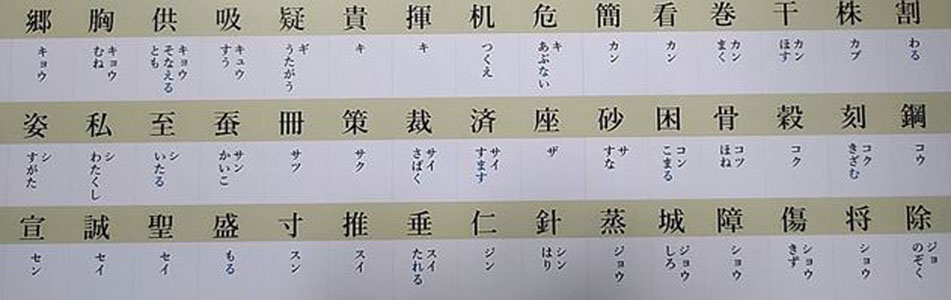 割 わる
株 カブ
干 カン ほす
巻 カン まく
看 カン
簡 カン
危 キ あぶない
机 つくえ
揮 キ
貴 キ
疑 ギ うたがう
吸 キュウ すう
供 キョウ そなえる とも
胸 キョウ むね
郷 キョウ
鋼 コウ
刻 コク きざむ
穀 コク
骨 コツ ほね
困 コン こまる
砂 サ すな
座 ザ
済 サイ すます
裁 サイ さばく
策 サク
冊 サツ
蚕 サン かいこ
至 シ いたる
私 シ わたくし
姿 シ すがた
除 ジョ のぞく
将 ショウ
傷 ショウ きず
障 ショウ
城 ジョウ しろ
蒸 ジョウ
針 シン はり
仁 ジン
垂 スイ たれる
推 スイ
寸 スン
盛 もる
聖 セイ
誠 セイ
宣 セン